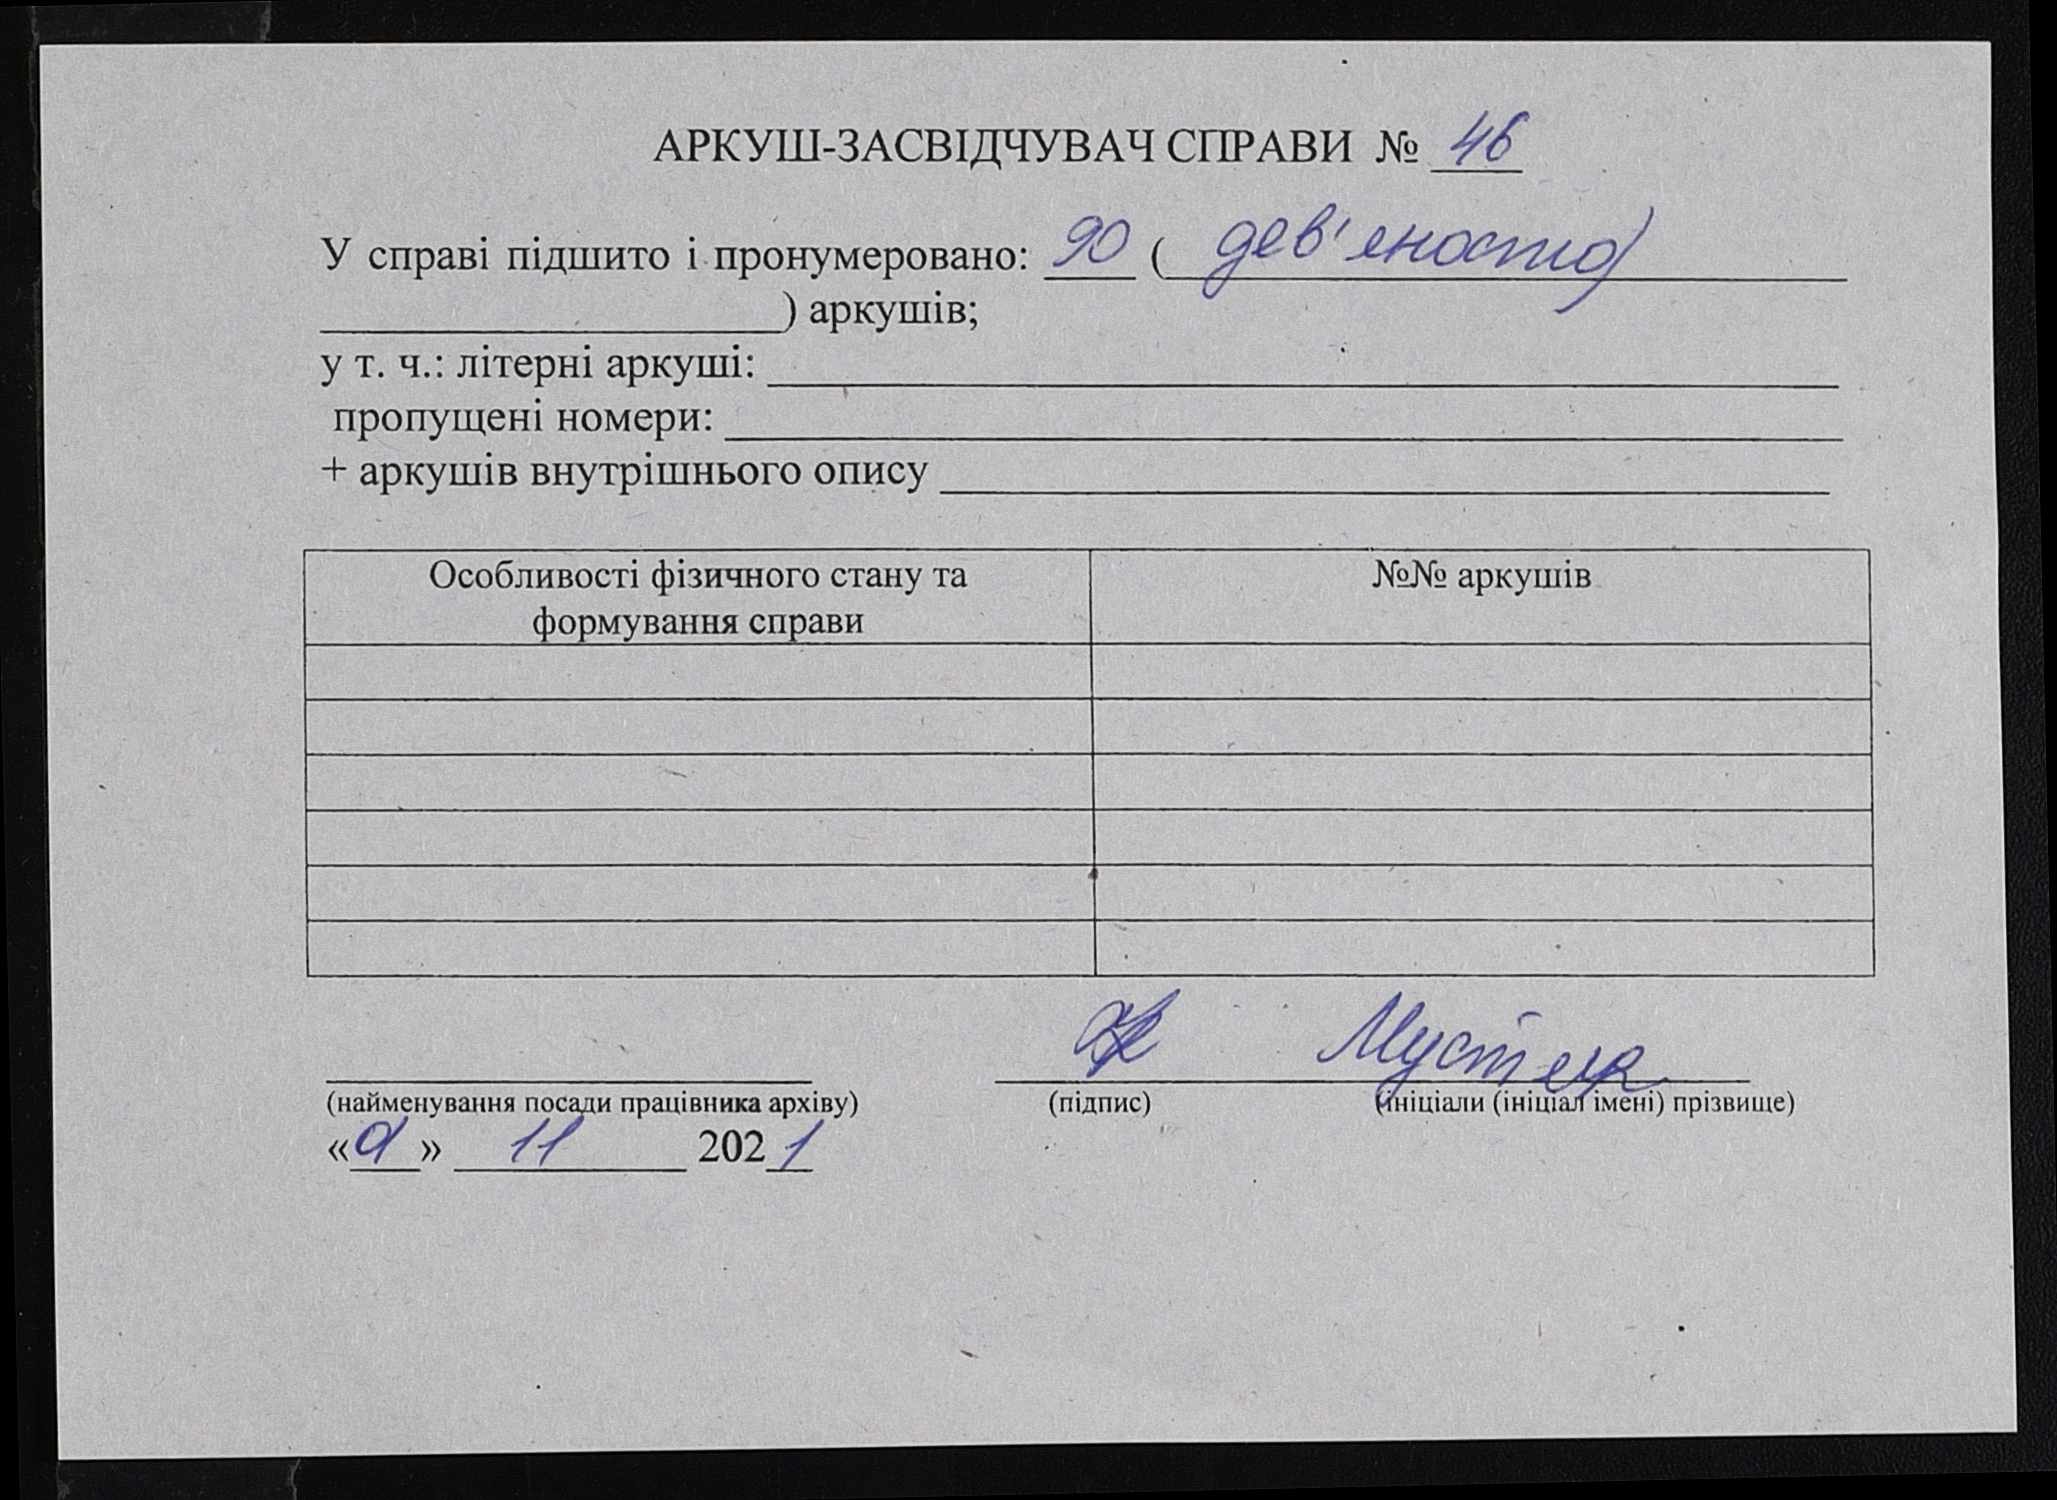 АРКУШ-ЗАСВІДЧУВАЧ СПРАВИ № 46
У справі підшито і пронумеровано: 90 ( дев'яносто)
) аркушів;
у т. ч.: літерні аркуші:
пропущені номери:
+ аркушів внутрішнього опису
Особливості фізичного стану та
формування справи
№№ аркушів
(найменування посади працівника архіву)
(підпис)
(ініціали (ініціал імені) прізвище)
« » 11 2021